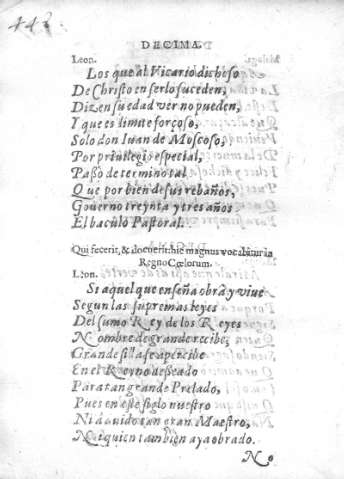 442
DECIMA.
Leon.
Los que al Vicario dichoso
De Christo en ser lo suceden,
Dizen su edad ver no pueden,
Y que es limite forçoso,
Solo don Iuan de Moscoso,
Por priuilegio especial,
Paßo de termino tal
Que por bien de sus rebaños,
Gouerno treynta y tres años
El baculo Pastoral.
Qui fecerit, & docuerit: hic magnus vocabitur in
Regno Cœlorum.
Leon.
Si aquel que enseña obra y viue
Segun las supremas leyes
Del sumo Rey de los Reyes
Nombre de grande recibe,
Grande silla se apercibe
En el Reyno deseado
Para tan grande Prelado,
Pues en este siglo nuestro
Ni a auido tan gran Maestro,
Ni quien tambien aya obrado.
No